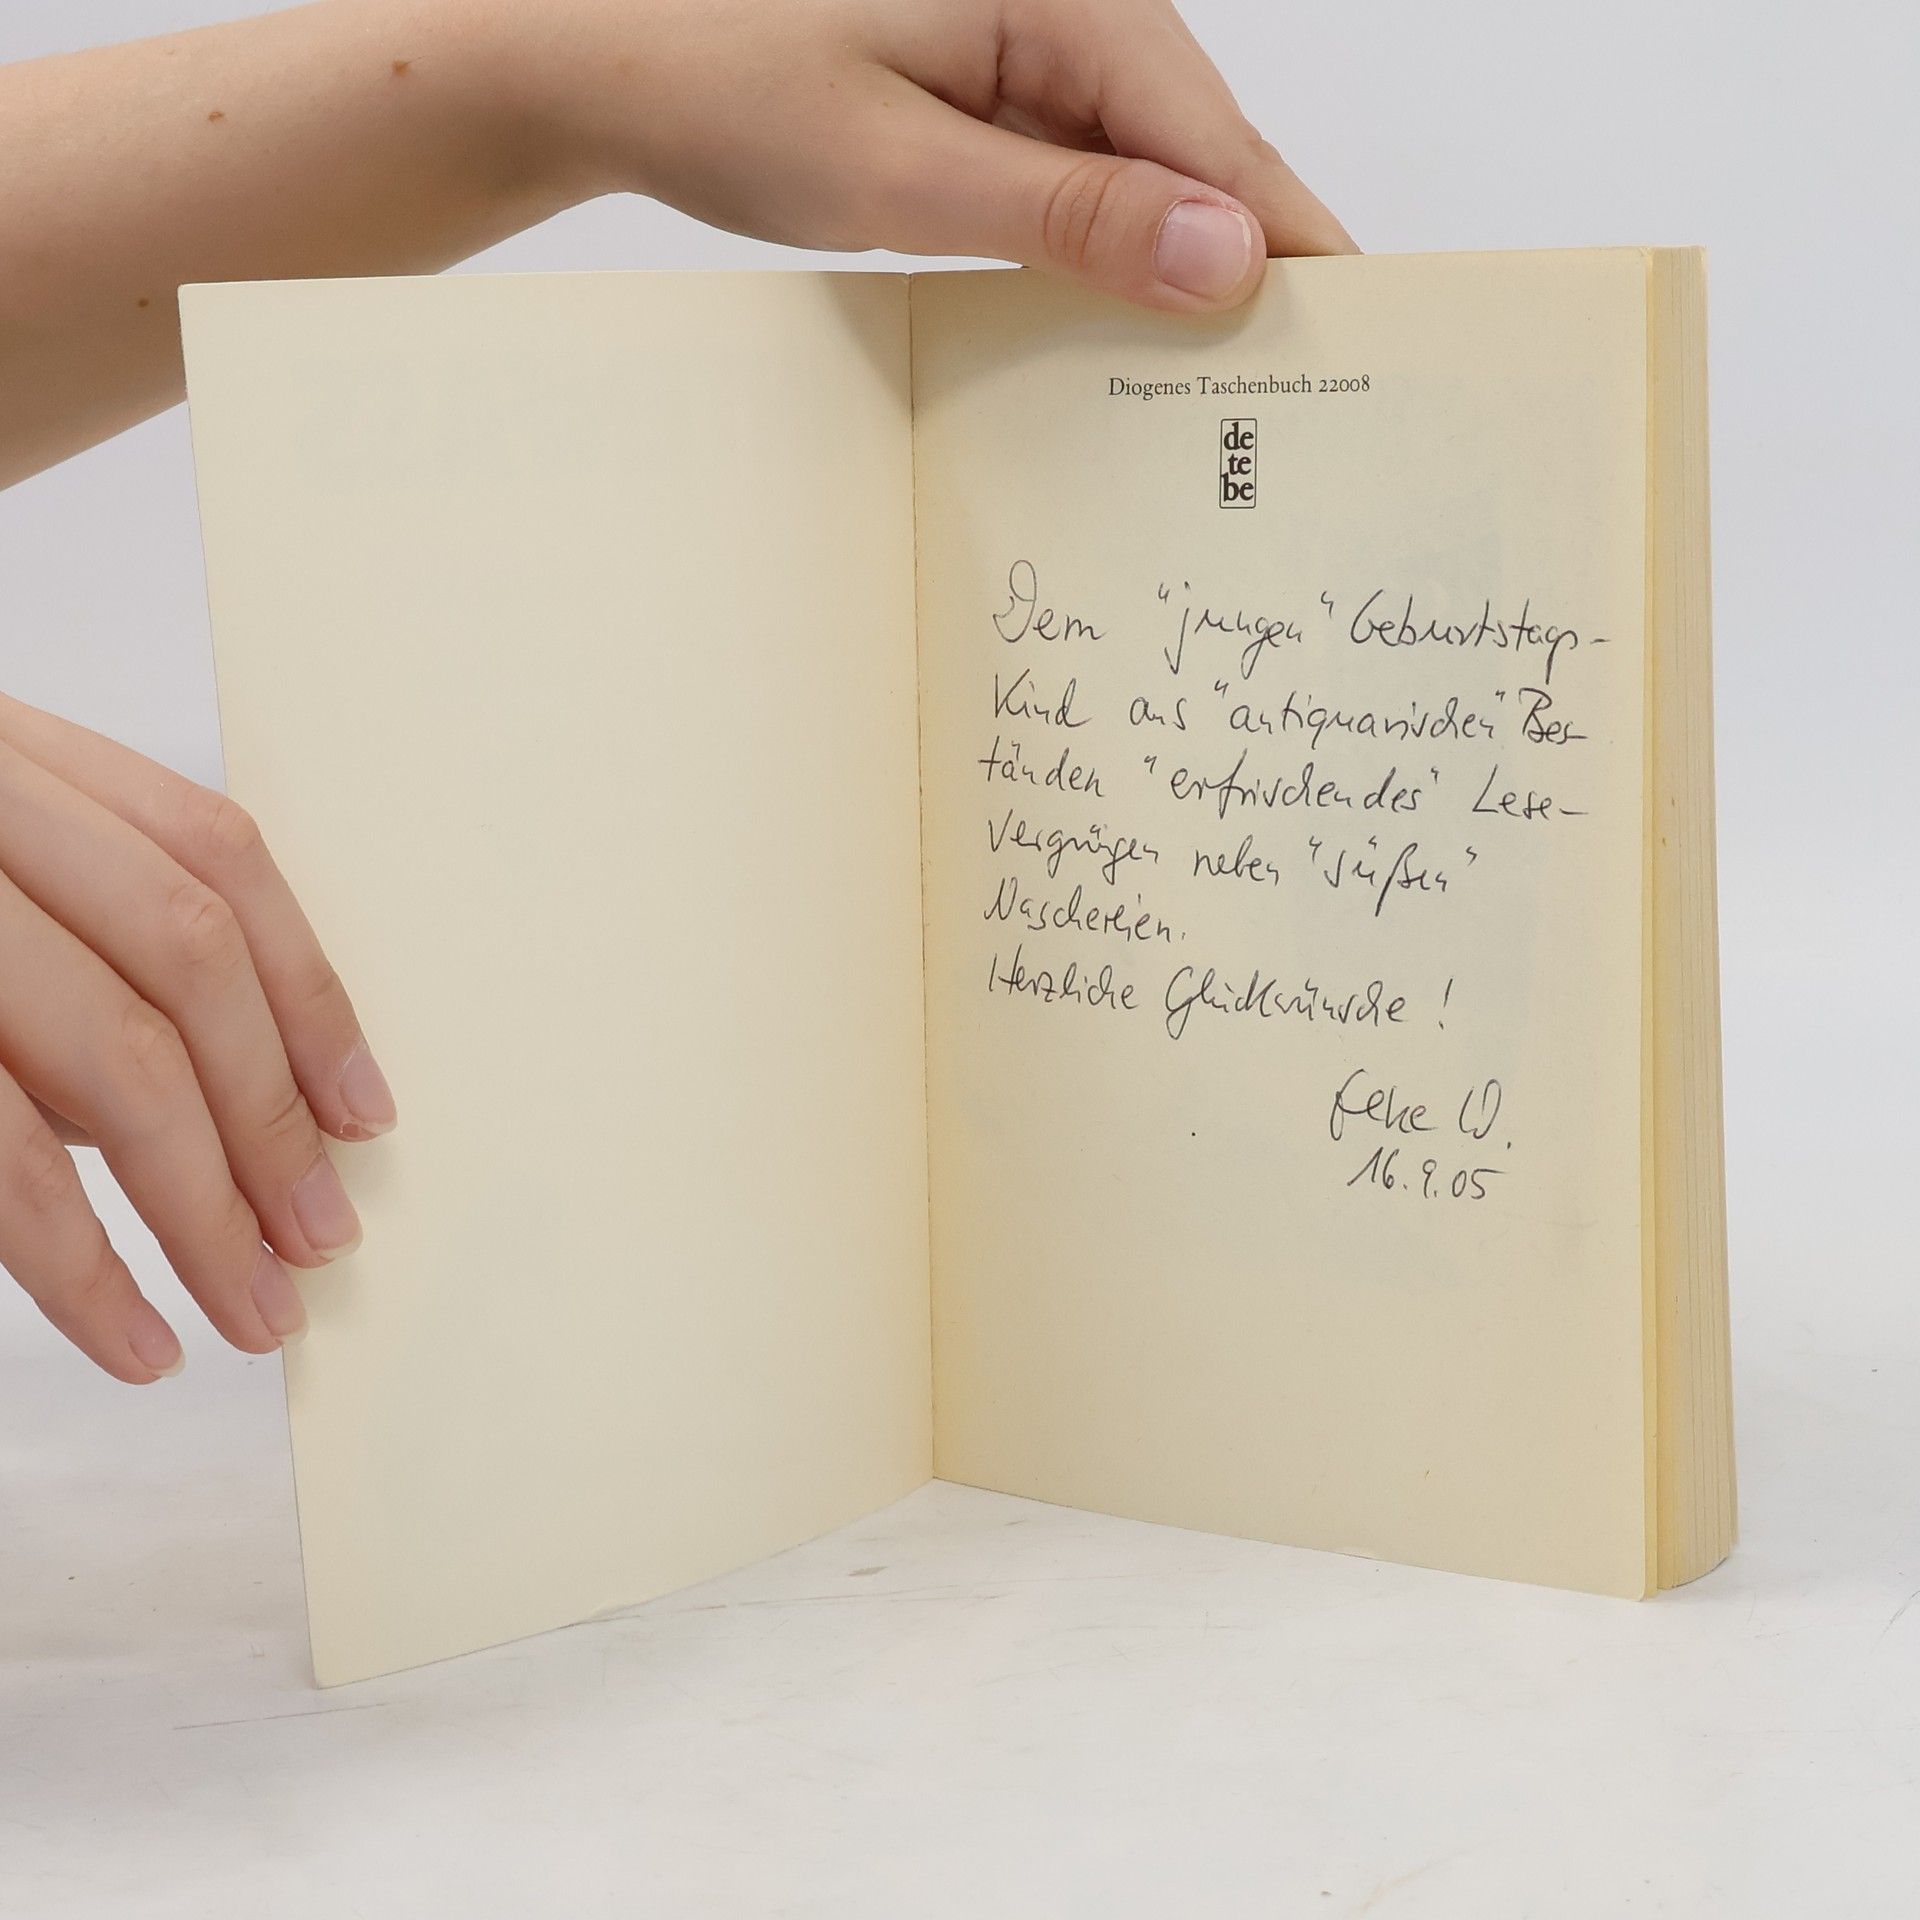 Diogenes Taschenbuch 22008
de
te
be
Dem "jungen" Geburtstags-
Kind aus "antiquarischen" Bes-
tänden "erfrischendes" Lese-
vergnügen neben "süßen"
Naschereien.
Herzliche Glückwünsche!
W.
16.9.05